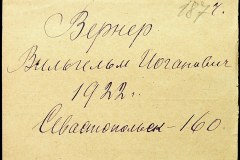 187
Вернер
Вильгельм Иоганович
1922 г.
Севастопольск-160.